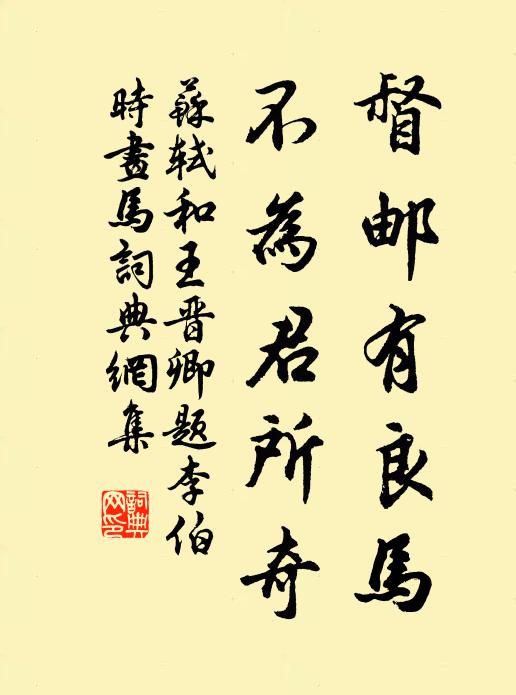 督邮有良馬
不為君所奇
蘇軾和王晉卿題李伯
時畫馬詞典網集
詞典
网印